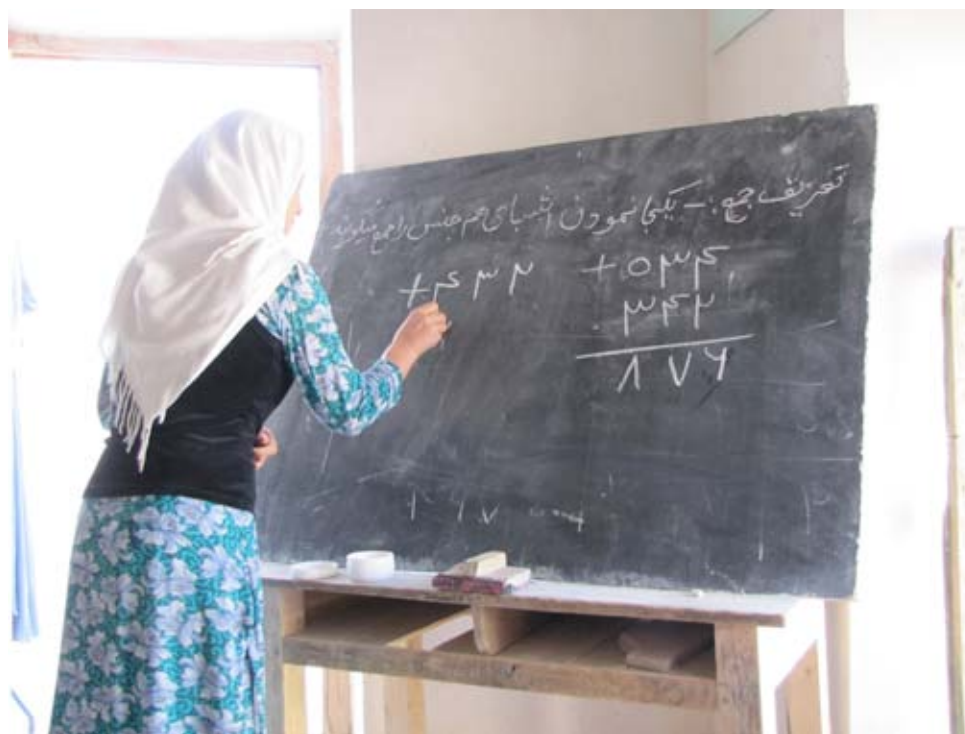 تعریف جمع :- یکجا نمودن اشیای هم جنس را جمع میگویند
+ ۵۳۴
۳۴۲
۸۷۶
+ ۴۳۲